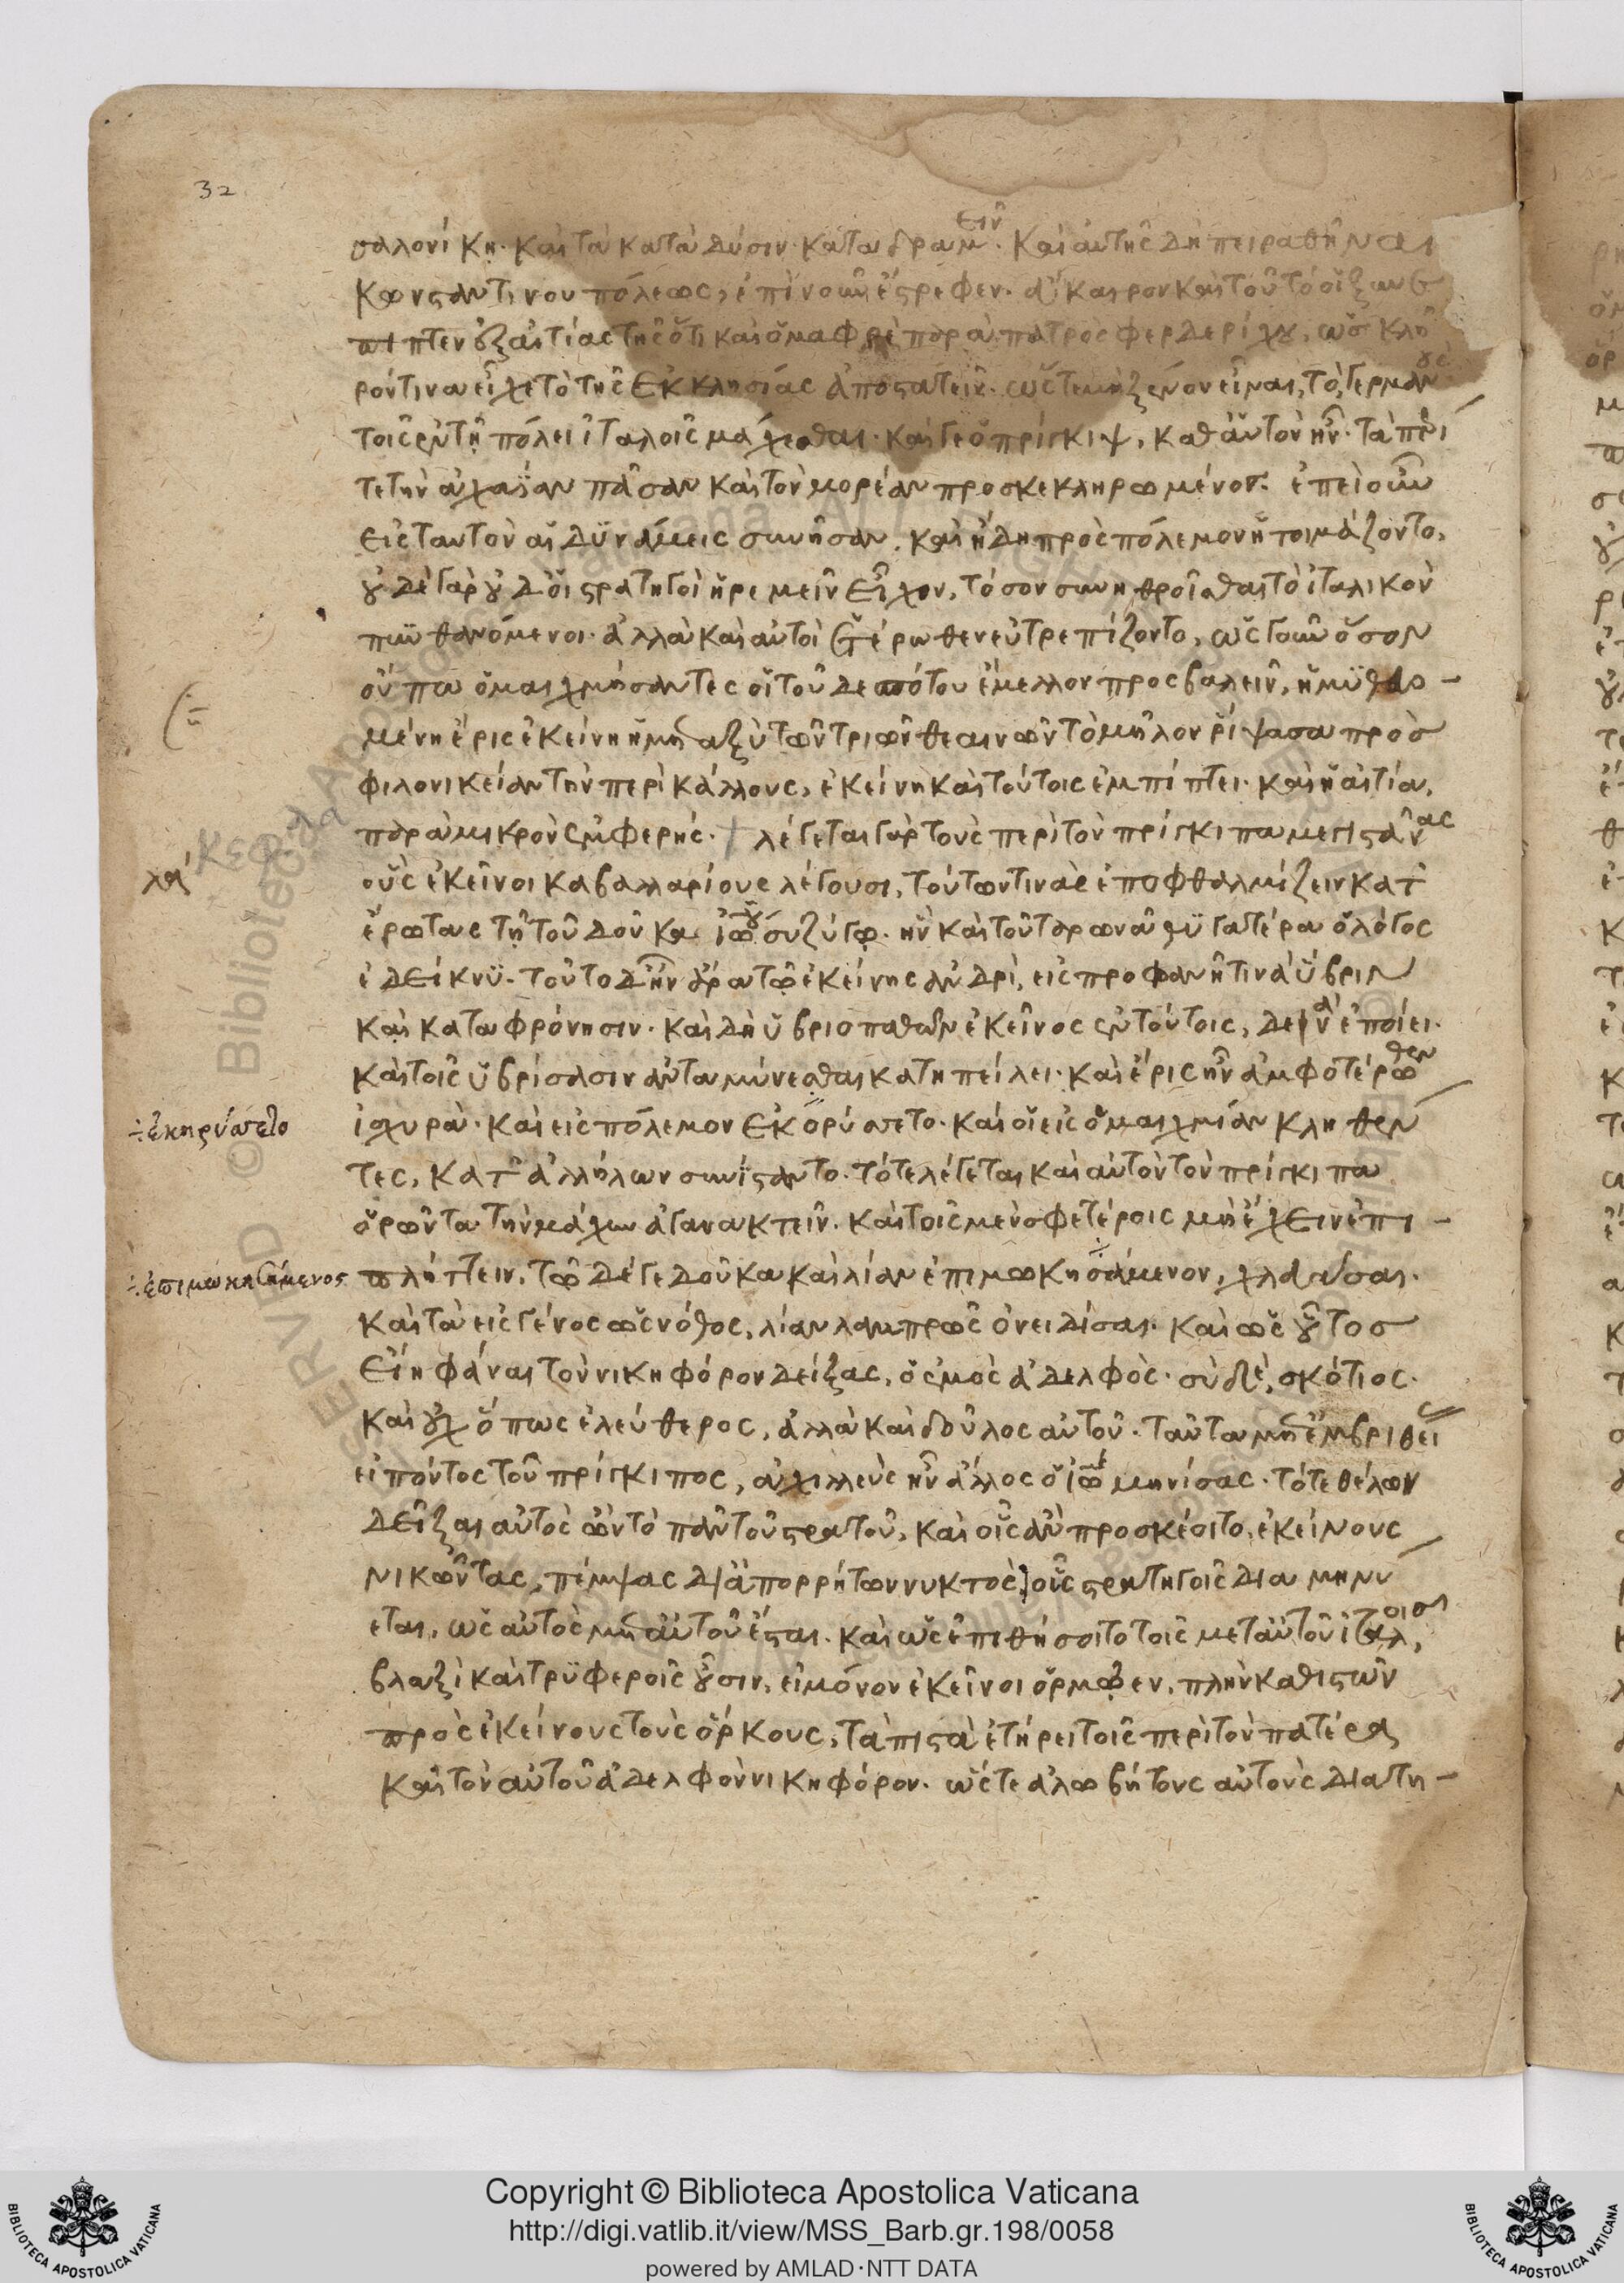 32
σαλονίκη. καὶ τὰ κατὰ δύσιν καταδραμεῖν. καὶ αὐτῆς δὴ πειραθῆναι
κωνσταντίνου πόλεως, ἐπὶ νοῦν ἔστρεφεν. οὐ καιρὸν καὶ τοῦτό οἱ ξυμ
πίπτειν ἐξ αἰτίας τῆς ὅτι καὶ ὁ μαφρὲ παρὰ πατρὸς φερδερίχου, ὡς κλῆ
ρόν τινα εἶχε τὸ τῆς ἐκκλησίας ἀποστατεῖν. ὥς τε μὴ ξένον εἶναι, τὸ γερμανοὺς
τοῖς ἐν τῇ πόλει ἰταλοῖς μάχεσθαι. καί γε ὁ πρίγκιψ, καθ' αὑτὸν ἦν. τὰ περί
τε τὴν ἀχαΐαν πᾶσαν καὶ τὸν μορέαν προσκεκληρωμένος. ἐπεὶ οὖν
εἰς ταυτὸν αἱ δυνάμεις συνῆσαν, καὶ ἤδη πρὸς πόλεμον ἡτοιμάζοντο,
οὐδὲ γὰρ οὐδ' οἱ στρατηγοὶ ἠρεμεῖν εἶχον, τόσον συνηθροῖσθαι τὸ ἰταλικὸν
πυνθανόμενοι. ἀλλὰ καὶ αὐτοὶ ἑτέρωθεν εὐτρεπίζοντο, ὡς γοῦν ὅσον
οὔπω ὁμαιχμήσαντες οἱ τοῦ δεσπότου ἔμελλον προσβαλεῖν, ἡ μυθευο-
μένη ἔρις ἐκείνη ἡ μεταξὺ τῶν τριῶν θεαινῶν τὸ μῆλον ῥίψασα πρὸς
φιλονικείαν τὴν περὶ κάλλους, ἐκείνη καὶ τούτοις ἐμπίπτει. καὶ ἡ αἰτία,
παραμικρὸν ἐμφερής. / λέγεται γὰρ τοὺς περὶ τὸν πρίγκιπα μεγιστᾶνας
οὓς ἐκεῖνοι καβαλλαρίους λέγουσι, τούτων τινὰς ἐποφθαλμίζειν κατ'
ἔρωτας τῇ τοῦ δούκα ἰωάννου συζύγῳ. ἣν καὶ τοῦ ταρωνᾶ θυγατέρα ὁ λόγος
ἐδείκνυ. τοῦτο δ' ἦν ἄρα τῷ ἐκείνης ἀνδρί, εἰς προφανῆ τινὰ ὕβριν
καὶ καταφρόνησιν. καὶ δὴ ὑβριοπαθῶν ἐκεῖνος ἐν τούτοις, δεινὰ ἐποίει.
καὶ τοῖς ὑβρίσασιν ἀνταμύνεσθαι κατηπείλει. καὶ ἔρις ἦν ἀμφοτέρωθεν
ἰσχυρά. καὶ εἰς πόλεμον ἐκορύσσετο. καὶ οἱ εἰς ὁμαιχμίαν κληθέν
τες, κατ' ἀλλήλων συνίσταντο. τότε λέγεται καὶ αὐτὸν τὸν πρίγκιπα
ὁρῶντα τὴν μάχην ἀγανακτεῖν. καὶ τοῖς μὲν σφετέροις μὴ ἔχειν ἐπι-
πλήττειν, τῷ δέ γε δούκα καὶ λίαν ἐπιμωκησάμενον, χλευάσαι.
καὶ τὰ εἰς γένος ὡς νόθος, λίαν λαμπρῶς ὀνειδίσαι. καὶ ὡς οὗτος
εἴη φάναι τὸν νικηφόρον δείξας, ὁ ἐμὸς ἀδελφός. σὺ δὲ, σκότιος.
καὶ οὐχ ὅπως ἐλεύθερος, ἀλλὰ καὶ δοῦλος αὐτοῦ. ταῦτα μετ' ἐμβριθείας
εἰπόντος τοῦ πρίγκιπος, ἀχιλλεὺς ἦν ἄλλος ὁ ἰωάννης μηνίσας. τότε θέλων
δεῖξαι αὐτὸς ὢν τὸ πᾶν τοῦ στρατοῦ, καὶ οἷς ἂν προσκέοιτο, ἐκείνους
νικῶντας, πέμψας δι' ἀπορρήτων νυκτὸς τοῖς στρατηγοῖς διαμηνύ
εται, ὡς αὐτὸς μετ' αὐτοῦ ἔσται. καὶ ὡς ἐπιθήσοιτο τοῖς μετ' αὐτοῦ ἰταλοῖς,
βλαξὶ καὶ τρυφεροῖς οὖσιν, εἰ μόνον ἐκεῖνοι ὁρμῷεν. πλὴν καθιστῶν
πρὸς ἐκείνους τοὺς ὅρκους, τὰ πιστὰ ἐτήρει τοῖς περὶ τὸν πατέρα
καὶ τὸν αὐτοῦ ἀδελφὸν νικηφόρον. ὥς τε ἀλωβήτους αὐτοὺς διατη-
κεφ. λα
λα'
÷ ἐκηρύττετο
÷ ἐπιμωκησάμενος
Copyright © Biblioteca Apostolica Vaticana
http://digi.vatlib.it/view/MSS_Barb.gr.198/0058
powered by AMLAD·NTT DATA
BIBLIOTECA APOSTOLICA VATICANA
BIBLIOTECA APOSTOLICA VATICANA